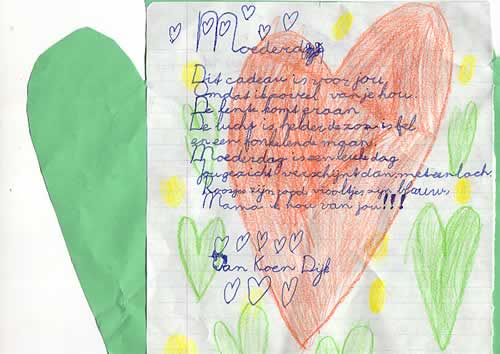 Moederdag
Dit cadeau is voor jou
Omdat ik zoveel van je hou.
De lente komt eraan
De lucht is helder de zon is fel
en een fonkelende maan.
Moederdag is een leuke dag
jou gezicht verschijnt dan met een lach.
Roosjes zijn rood, viooltjes zijn blauw,
Mama ik hou van jou!!!
Van Koen Dijk